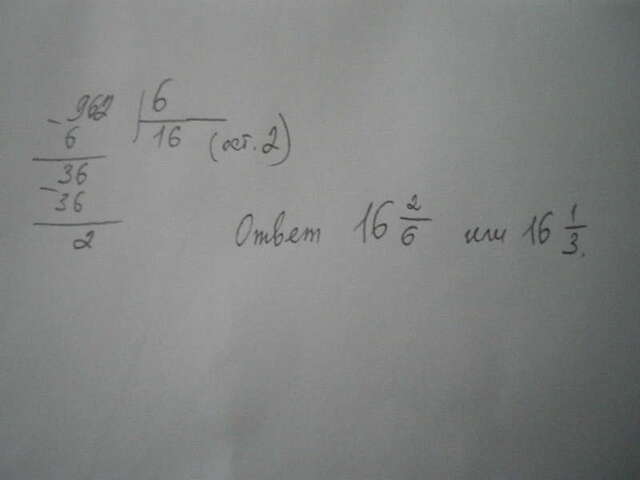 -962 | 6
6 16 (ост. 2)
-36
36
2
Ответ 16 2/6 или 16 1/3.